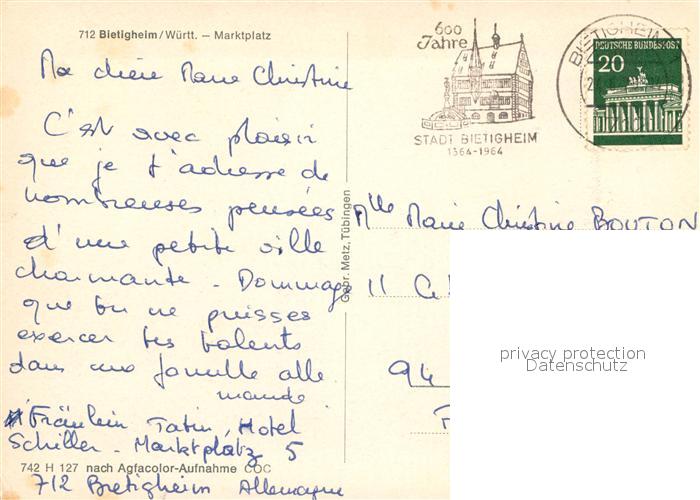 712 Bietigheim/Württ. – Marktplatz
Ma chère Marie Christine
C'est avec plaisir
que je t'adresse de
nombreuses pensées
d'une petite ville
charmante - Dommage
que tu ne puisses
exercer tes talents
dans une famille alle
mande
Fräulein Tatin, Hotel
Schiller - Marktplatz 5
742 H 127 nach Agfacolor-Aufnahme COC
712 Bietigheim Allemagne
Gebr. Metz, Tübingen
600
Jahre
STADT BIETIGHEIM
1364-1964
BIETIGHEIM
DEUTSCHE BUNDESPOST
20
Mlle Marie Christine BOUTON
11
94
privacy protection
Datenschutz